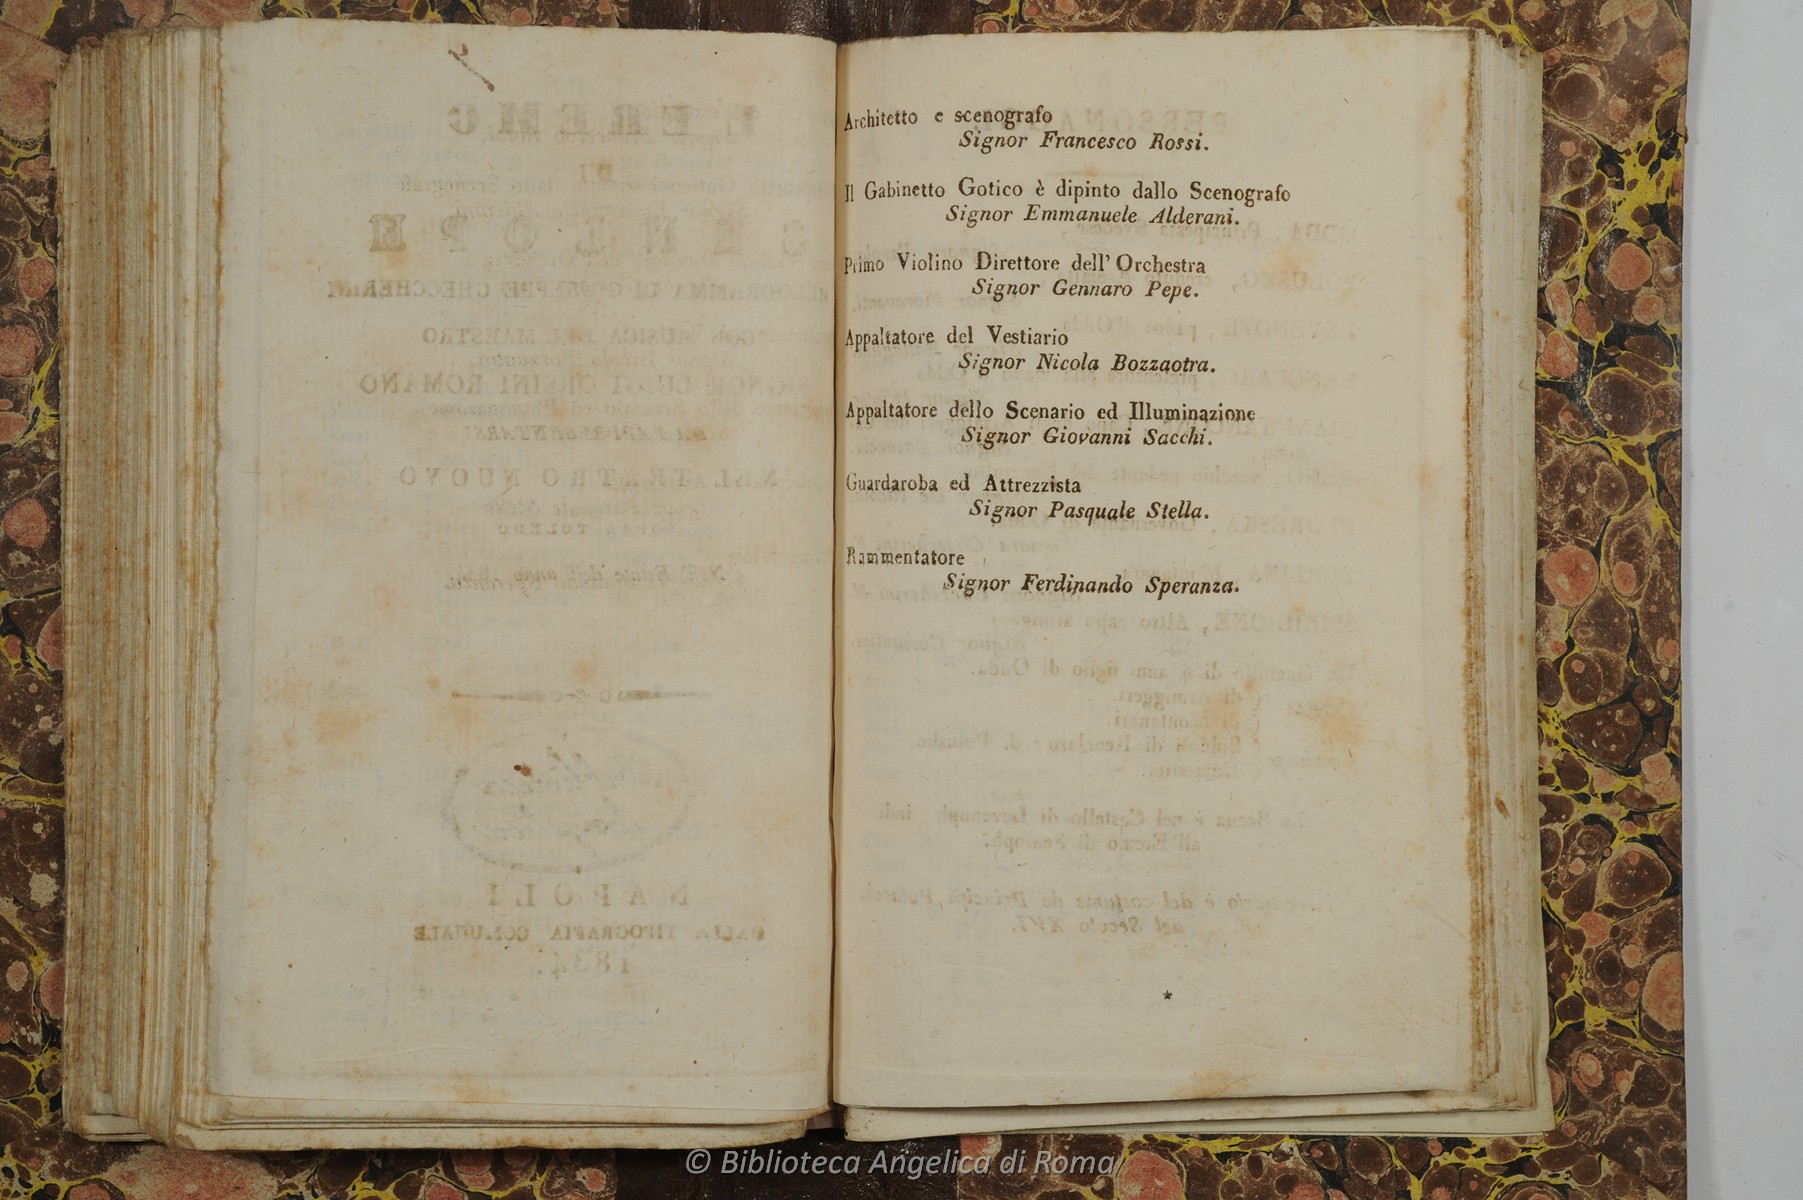 Architetto e scenografo
Signor Francesco Rossi.
Il Gabinetto Gotico è dipinto dallo Scenografo
Signor Emmanuele Alderani.
Primo Violino Direttore dell' Orchestra
Signor Gennaro Pepe.
Appaltatore del Vestiario
Signor Nicola Bozzaotra.
Appaltatore dello Scenario ed Illuminazione
Signor Giovanni Sacchi.
Guardaroba ed Attrezzista
Signor Pasquale Stella.
Rammentatore
Signor Ferdinando Speranza.
*
© Biblioteca Angelica di Roma